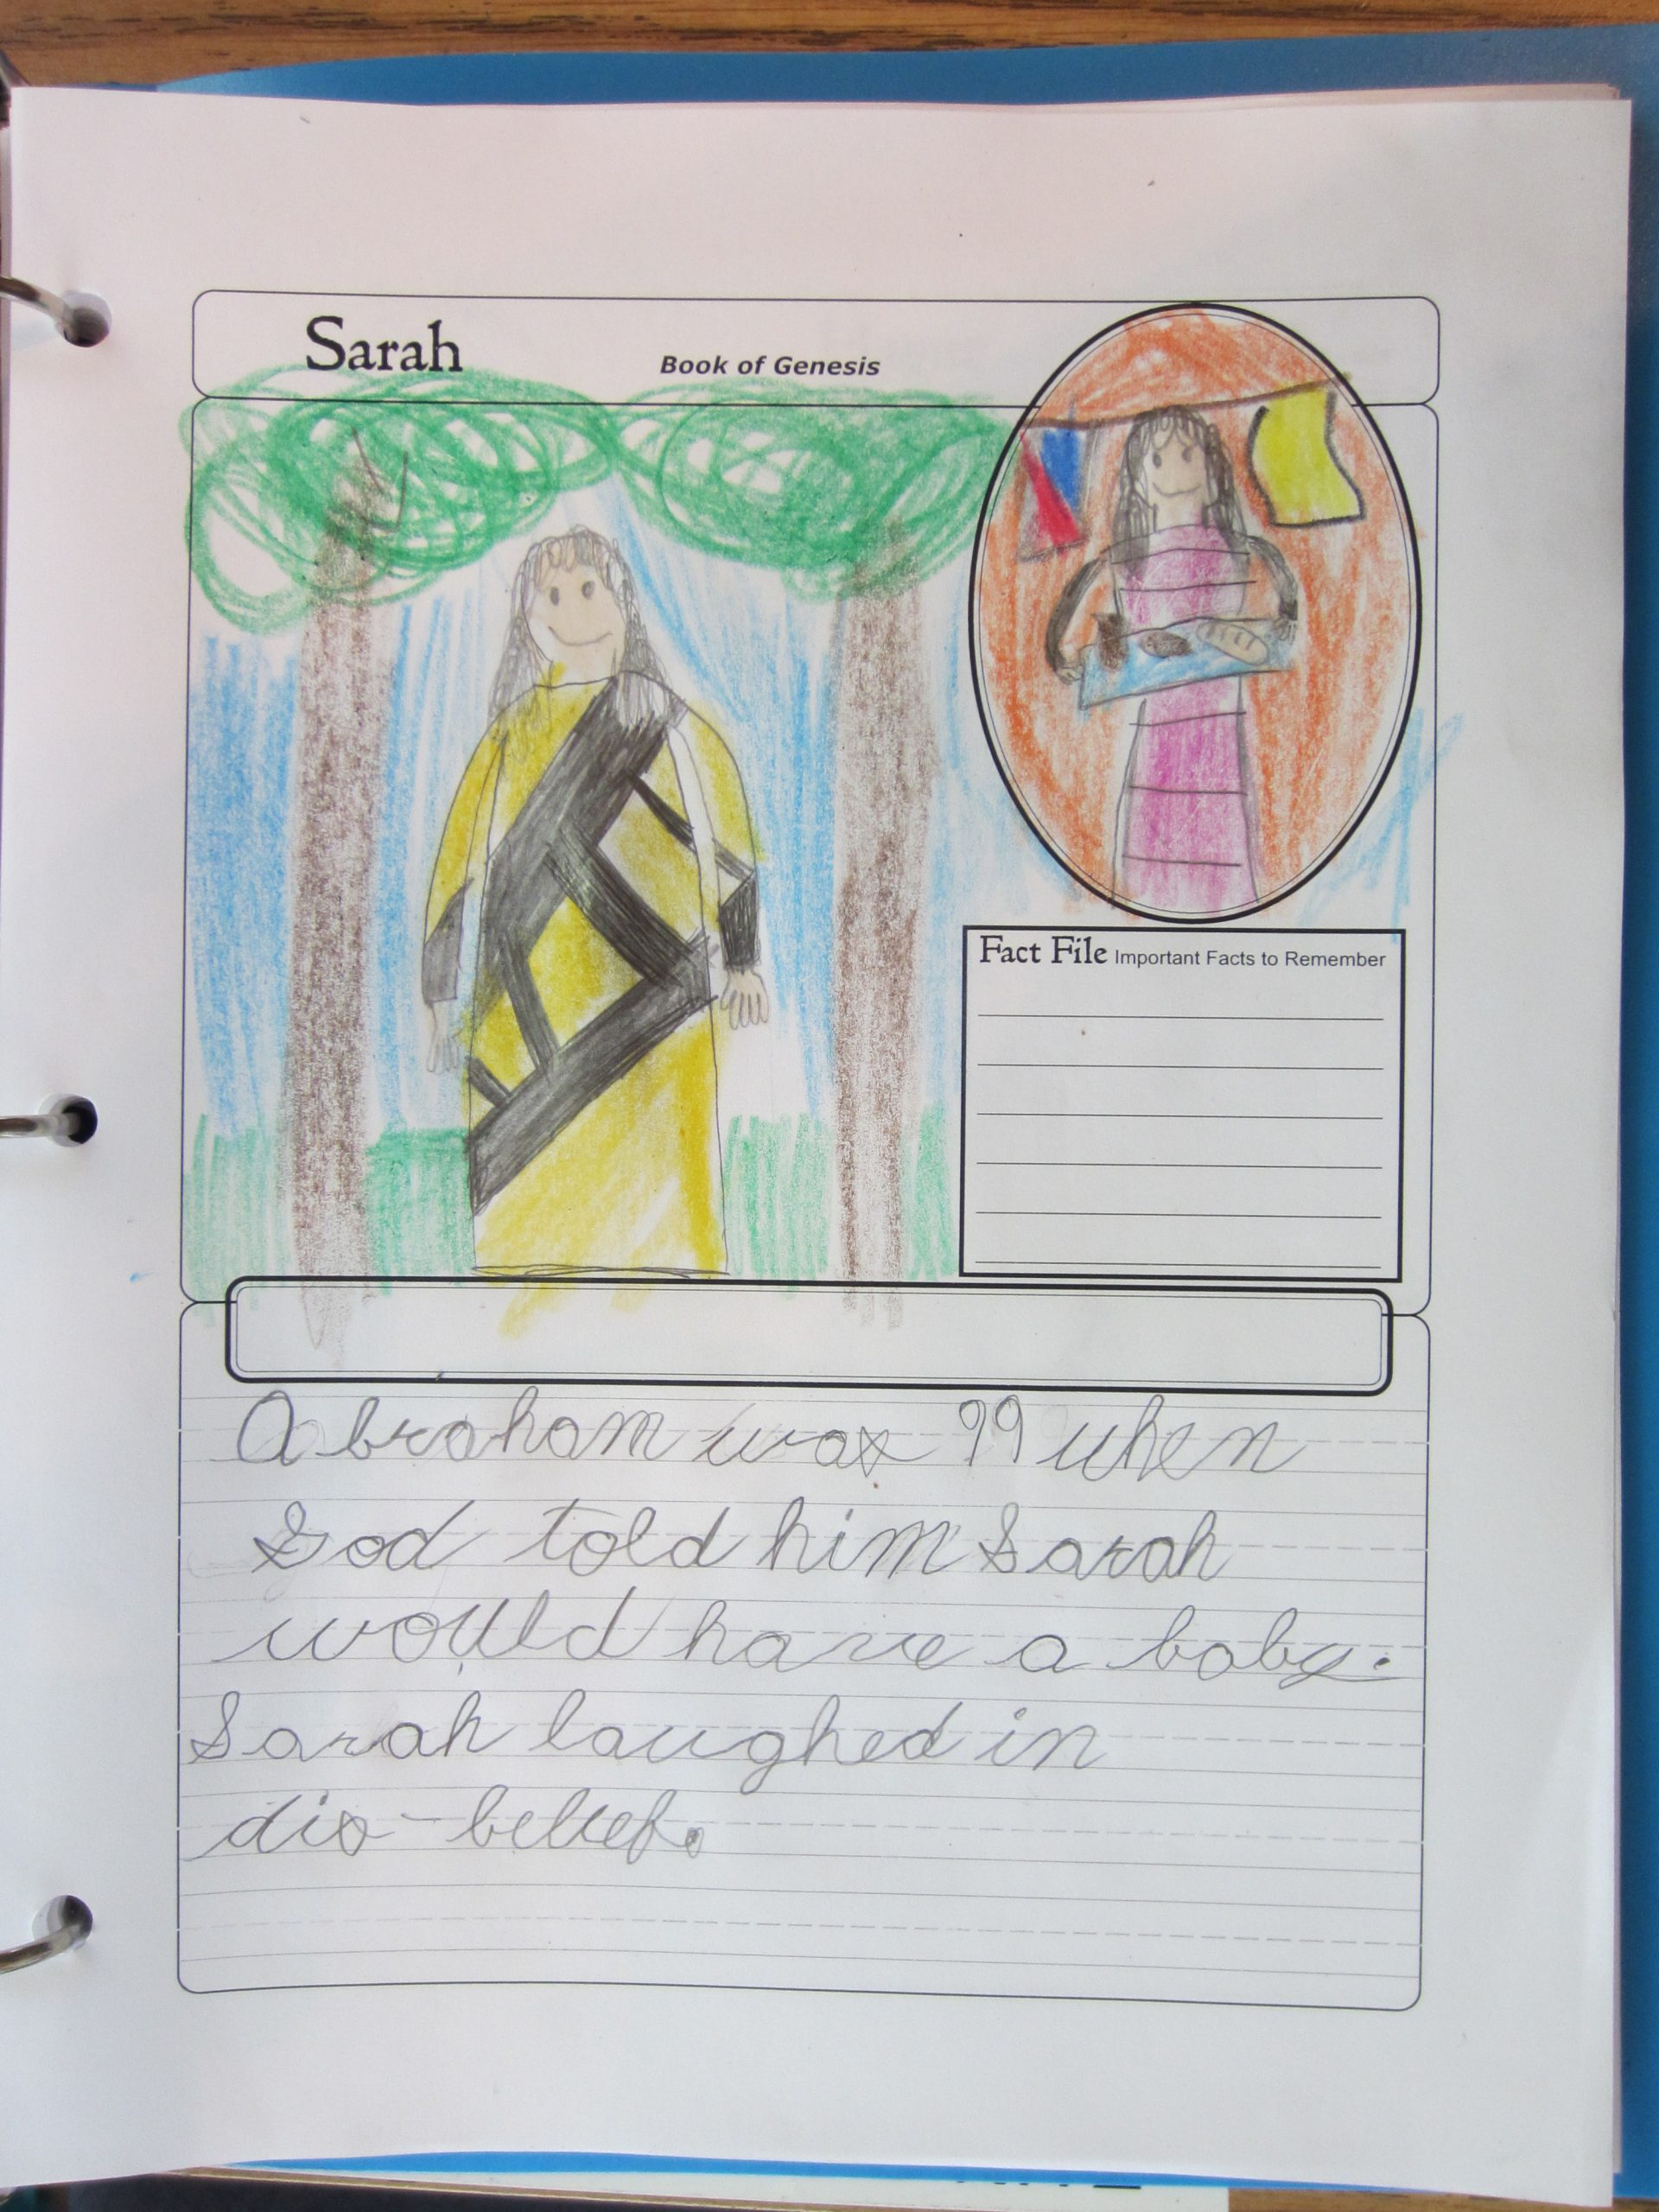 Sarah
Book of Genesis
Fact File Important Facts to Remember
Abraham was 99 when
God told him Sarah
would have a baby.
Sarah laughed in
dis-belief.